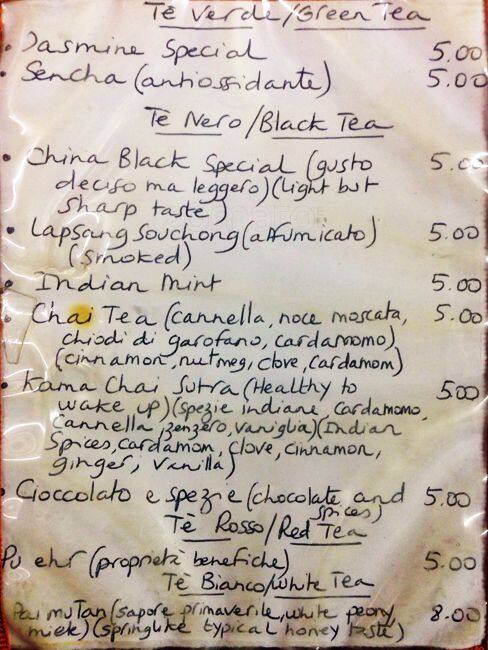 Tè Verde/Green Tea
• Jasmine Special 5.00
• Sencha (antiossidante) 5.00
Tè Nero/Black Tea
• China Black Special (gusto 5.00
deciso ma leggero) (light but
sharp taste)
• Lapsang Souchong (affumicato) 5.00
(smoked)
• Indian Mint 5.00
• Chai Tea (cannella, noce moscata, 5.00
chiodi di garofano, cardamomo)
(cinnamon, nutmeg, clove, cardamom)
• Kama Chai Sutra (Healthy to 5.00
wake up) (spezie indiane, cardamomo,
cannella, zenzero, vaniglia) (Indian
Spices, cardamom, clove, cinnamon,
ginger, vanilla)
• Cioccolato e spezie (chocolate and 5.00
spices)
Tè Rosso/Red Tea
Pu ehr (proprietà benefiche) 5.00
Tè Bianco/White Tea
Pai mu Tan (sapore primaverile, white peony, 8.00
miele) (springlike typical honey taste)